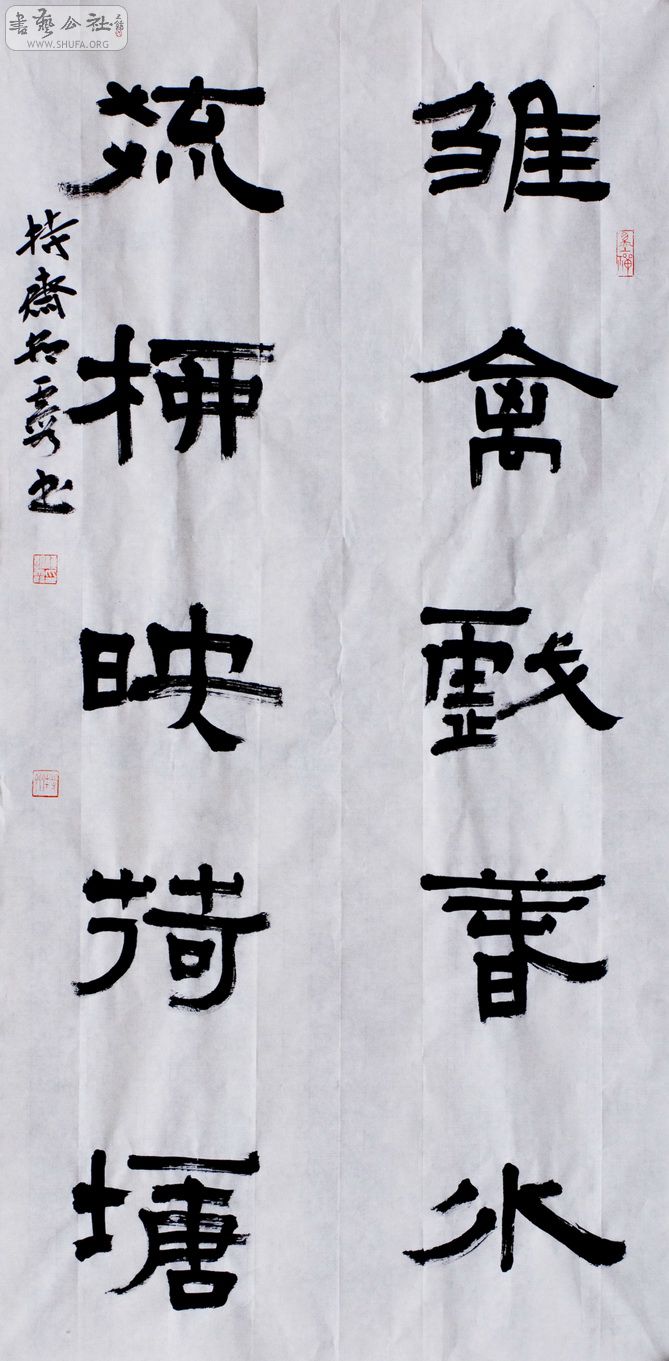 書藝公社
WWW.SHUFA.ORG
雏禽戲春水
疏柳映荷塘
齋 书